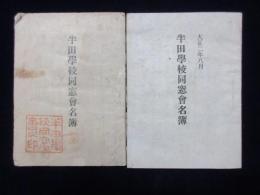 半田學校同窓會名簿
大正二年八月
半田學校同窓會名簿